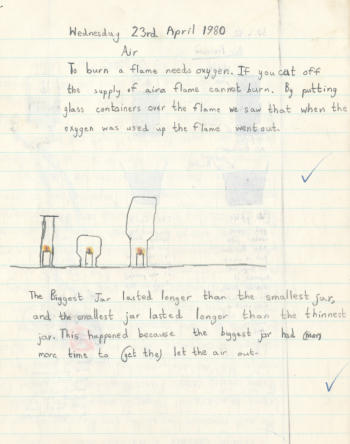 Wednesday 23rd April 1980
Air
To burn a flame needs oxygen. If you cut off
the supply of aira flame cannot burn. By putting
glass containers over the flame we saw that when the
oxygen was used up the flame went out.
The Biggest Jar lasted longer than the smallest jar,
and the smallest jar lasted longer than the thinnest
jar. This happened because the biggest jar had (more)
more time to (get the) let the air out.